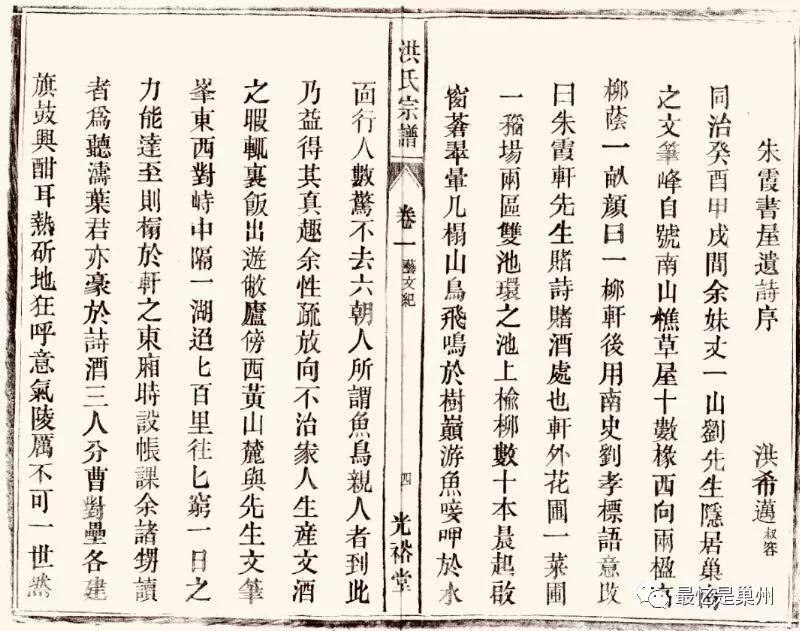 朱霞書屋遺詩序
洪希邁 叔容
同治癸酉甲戌間余妹丈一山劉先生隱居巢
之文筆峰自號南山樵草屋十數椽西向兩楹
柳蔭一畝顔曰一柳軒後用南史劉孝標語意改
曰朱霞軒先生賭詩賭酒處也軒外花圃一菜圃
一稻場兩區雙池環之池上榆柳數十本晨起啟
窗蒼翠暈几榻山鳥飛鳴於樹巔游魚唼呷於水
洪氏宗譜
卷一
藝文紀
四
光裕堂
面行人數驚不去六朝人所謂魚鳥親人者到此
乃益得其真趣余性疏放向不治家人生産文酒
之暇輒裹飯出遊敝廬傍西黃山麓與先生文筆
峯東西對峙中隔一湖迢匕百里往匕窮一日之
力能達至則榻於軒之東廂時設帳課余諸甥讀
者爲聽濤葉君亦豪於詩酒三人分曹對壘各建
旗鼓興酣耳熱斫地狂呼意氣陵厲不可一世然
最忆是巢州